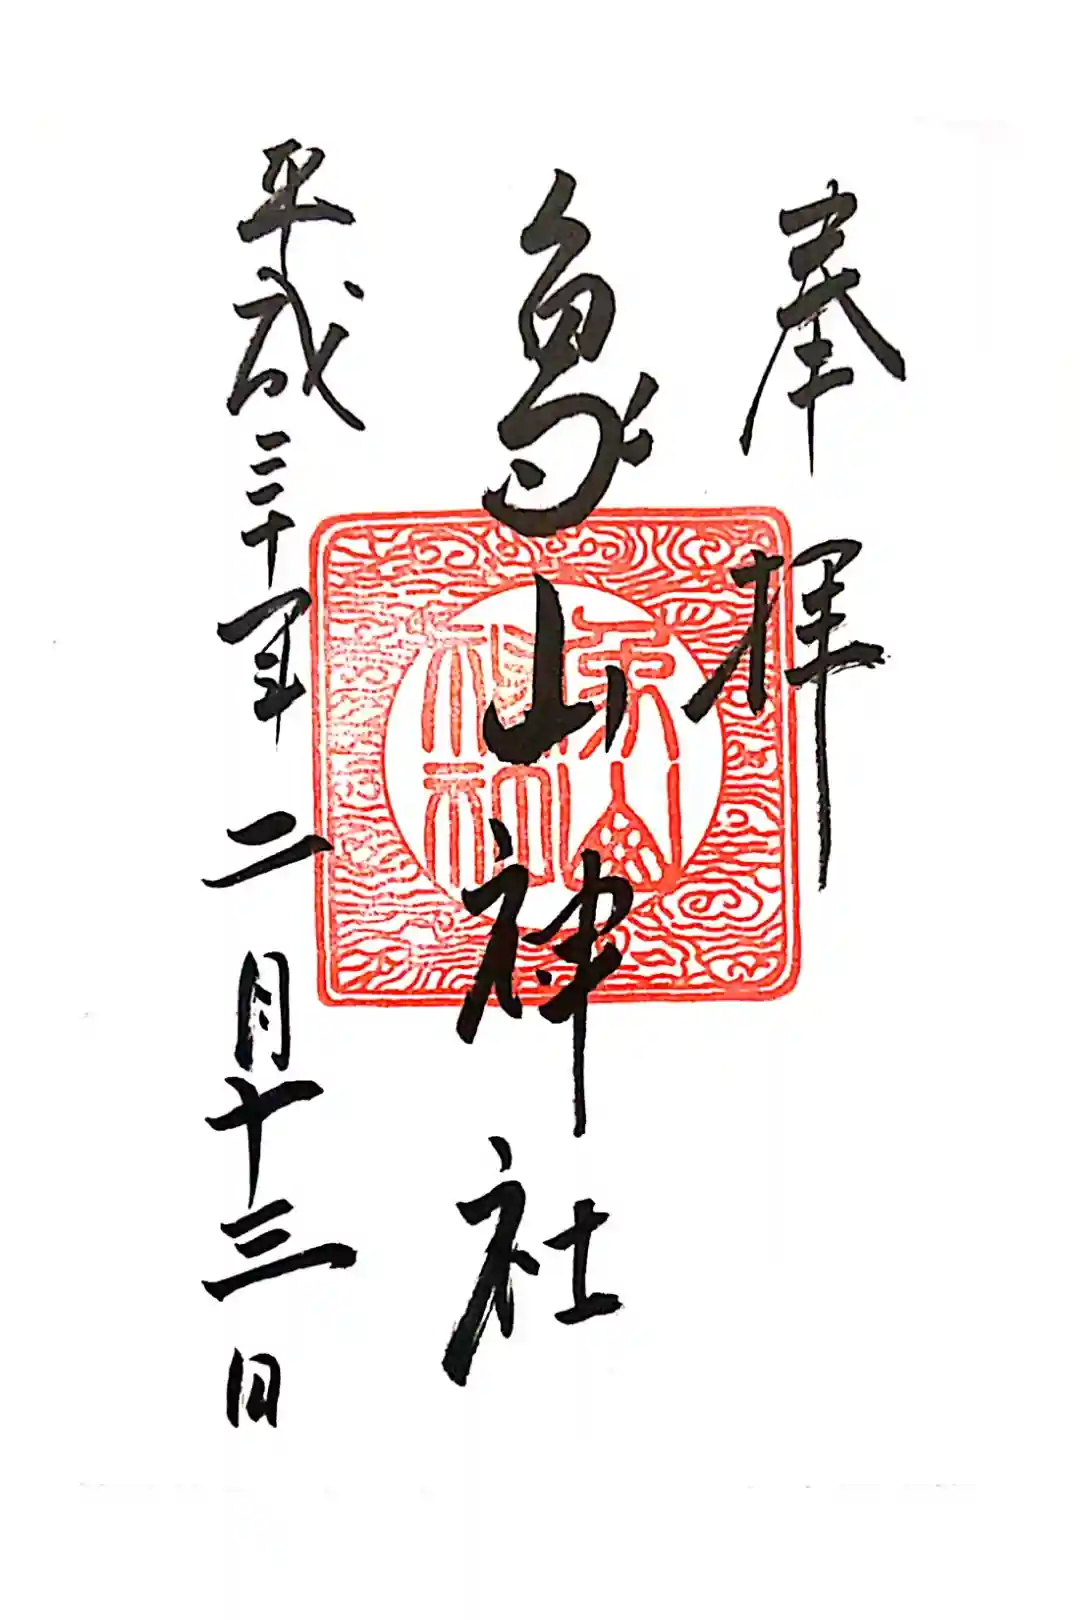 奉拝
象山神社
平成三十年二月十三日
象山
神社